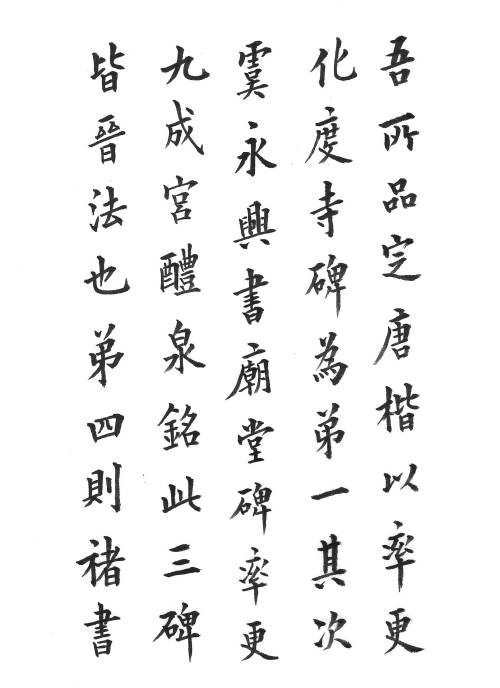 吾所品定唐楷以率更
化度寺碑為弟一其次
虞永興書廟堂碑率更
九成宮醴泉銘此三碑
皆晉法也弟四則褚書